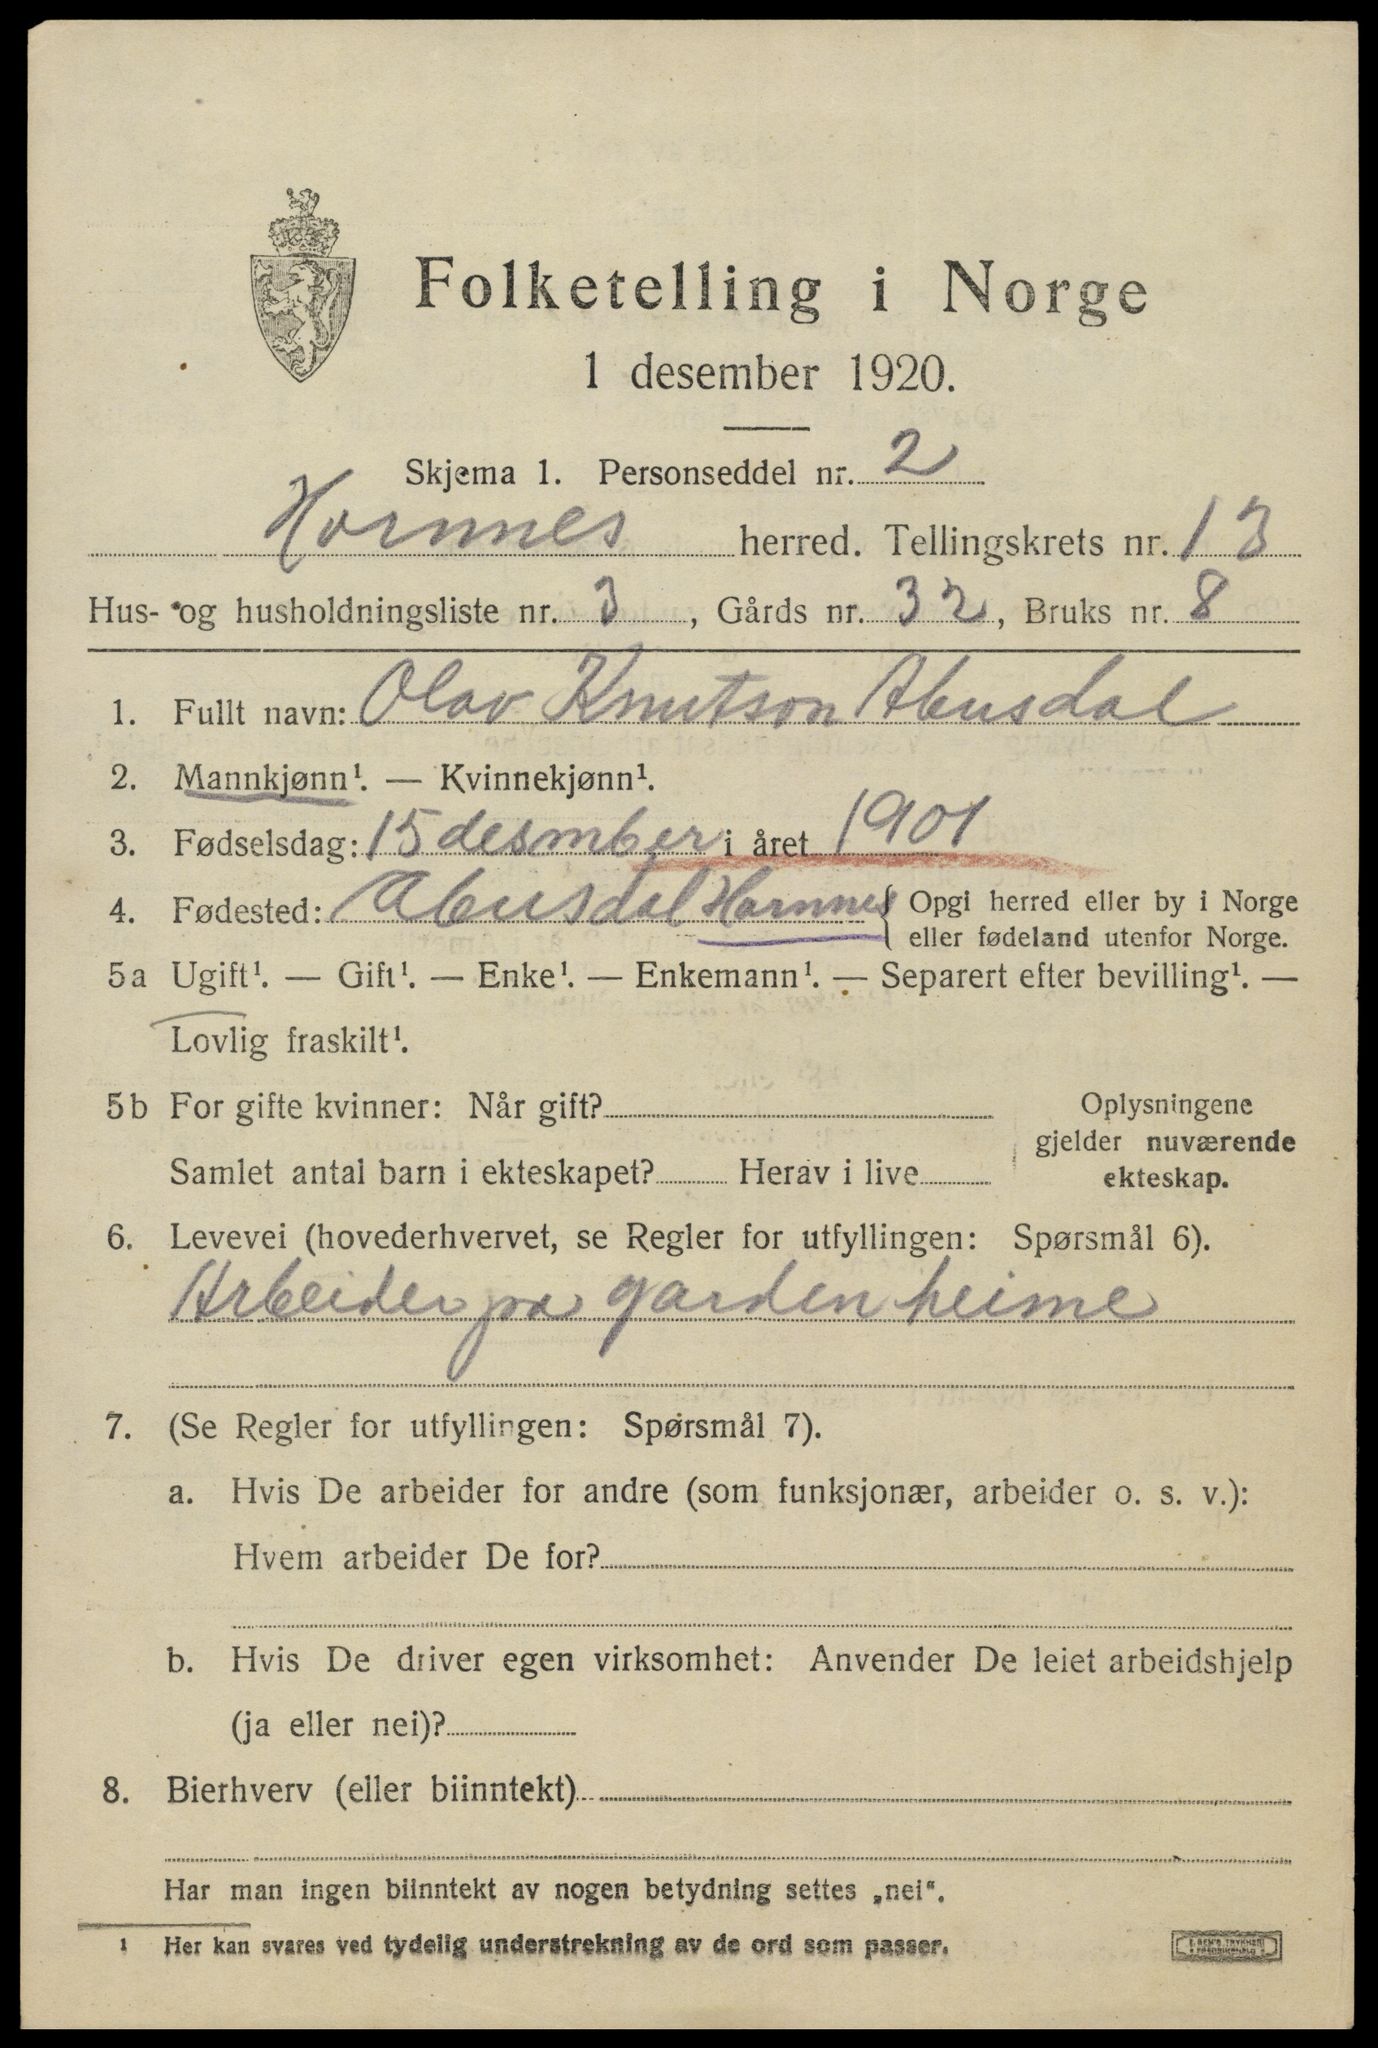 Folketelling i Norge
1 desember 1920.
Skjema 1. Personseddel nr. 2
Hornnes herred. Tellingskrets nr. 13
Hus- og husholdningsliste nr. 3, Gårds nr. 32, Bruks nr. 8
1. Fullt navn: Olav Knutson Abusdal
2. Mannkjønn¹. — Kvinnekjønn¹.
3. Fødselsdag: 15 desmber i året 1901
4. Fødested: Abusdal Hornnes { Opgi herred eller by i Norge
eller fødeland utenfor Norge.
5a Ugift¹. — Gift¹. — Enke¹. — Enkemann¹. — Separert efter bevilling¹. —
Lovlig fraskilt¹.
5b For gifte kvinner: Når gift? Oplysningene
gjelder nuværende
Samlet antal barn i ekteskapet? Herav i live ekteskap.
6. Levevei (hovederhvervet, se Regler for utfyllingen: Spørsmål 6).
Arbeider pa garden heime
7. (Se Regler for utfyllingen: Spørsmål 7).
a. Hvis De arbeider for andre (som funksjonær, arbeider o. s. v.):
Hvem arbeider De for?
b. Hvis De driver egen virksomhet: Anvender De leiet arbeidshjelp
(ja eller nei)?
8. Bierhverv (eller biinntekt)
Har man ingen biinntekt av nogen betydning settes „nei".
¹ Her kan svares ved tydelig understrekning av de ord som passer.